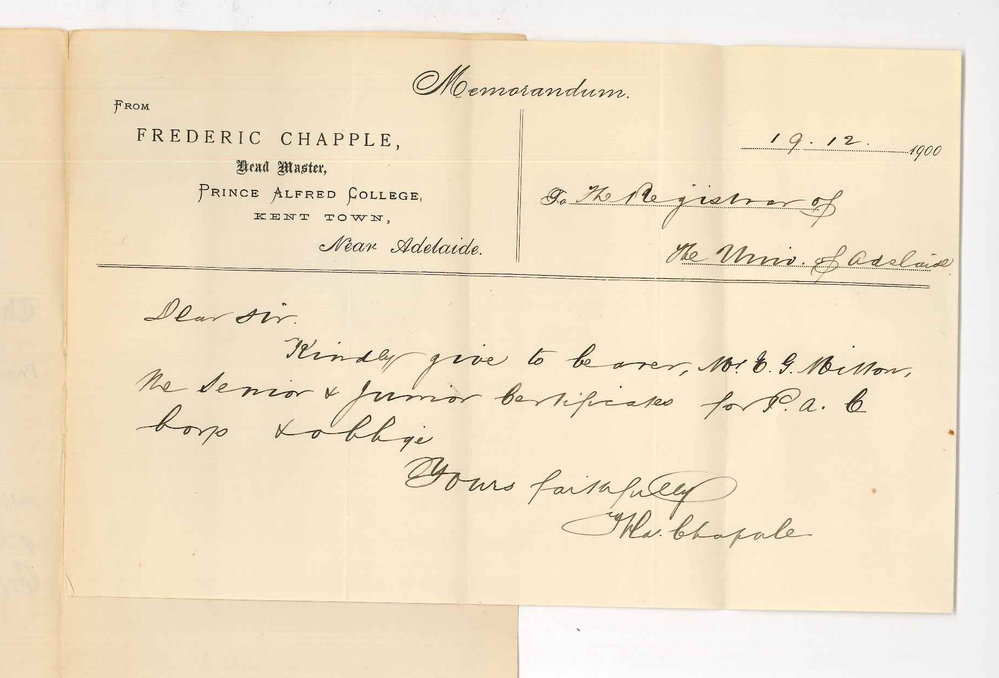 Memorandum.
FROM
FREDERIC CHAPPLE,
Head Master,
PRINCE ALFRED COLLEGE,
KENT TOWN,
Near Adelaide.
19.12. 1900
To The Registrar of
The Univ. of Adelaide
Dear Sir.
Kindly give to bearer, Mr. E. G. Mitton,
the Senior & Junior Certificates for P. A. C
boys & oblige
Yours faithfully
Chapple